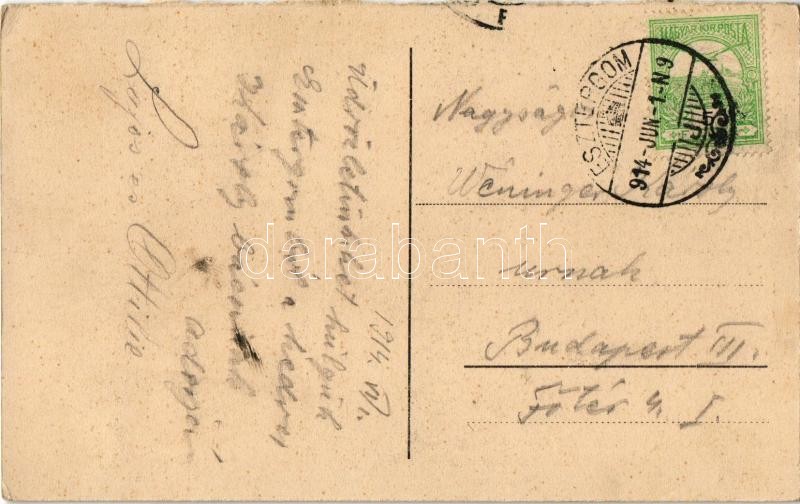 MAGYAR KIR. POSTA
ESZTERGOM
914-JUN.-1-N9
F
Nagyságos
Wéninger Károly
urnak
Budapest III.
Főtér 4. I.
1914 VI/1.
Üdvözletünket küldjük
Esztergomból a kedves
Károly bácsinak
Lajos és Ottilie
darabanth